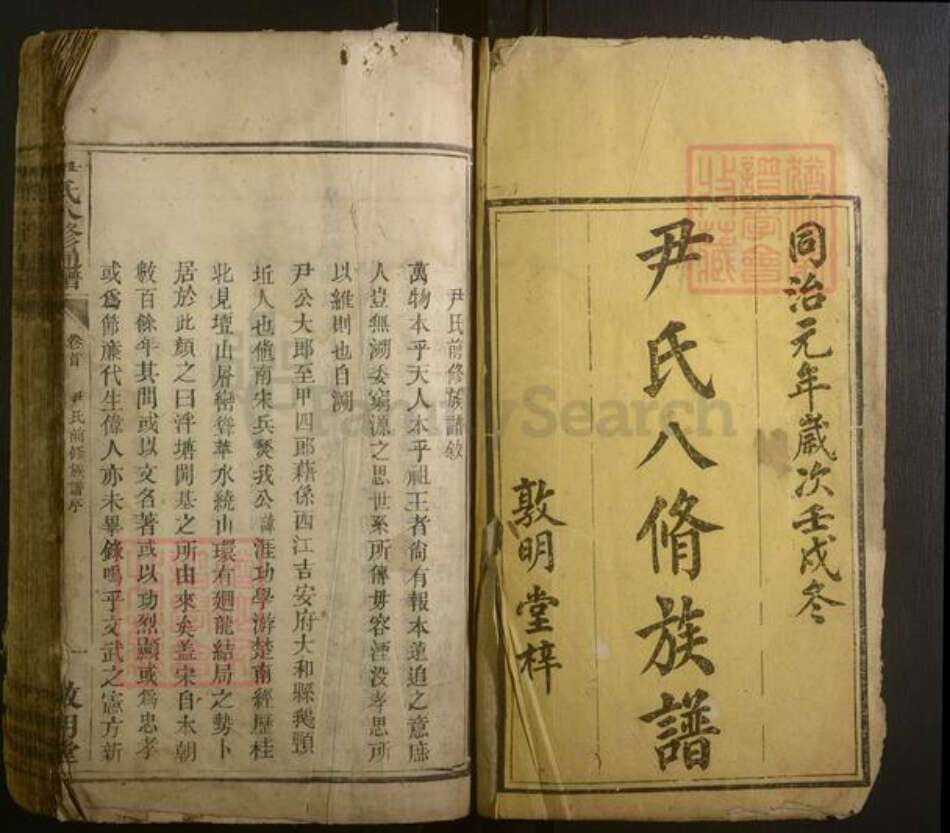 同治元年歲次壬戌冬
尹氏八脩族譜
敦明堂梓
尹氏前修族譜敘
萬物本乎天人本乎祖王者尙有報本追之意庶
人豈無溯委窮源之思世系所傳毋容湮没孝思所
以維則也自溯
尹公大郎至甲四郎藉係西江吉安府大和縣鵞頸
坵人也値南宋兵燹我公諱淮功學游楚南經歷桂
北見壇山層巒聳華水繞山環有廻龍結局之勢卜
居於此顏之曰泮塘開基之所由來矣盖宋自本朝
數百餘年其間或以文名著或以功烈顯或爲忠孝
或爲節廉代生偉人亦未畢錄嗚乎文武之憲方新
氏八修通譜
卷首
尹氏前修族譜序
一
敦明堂
FamilySearch